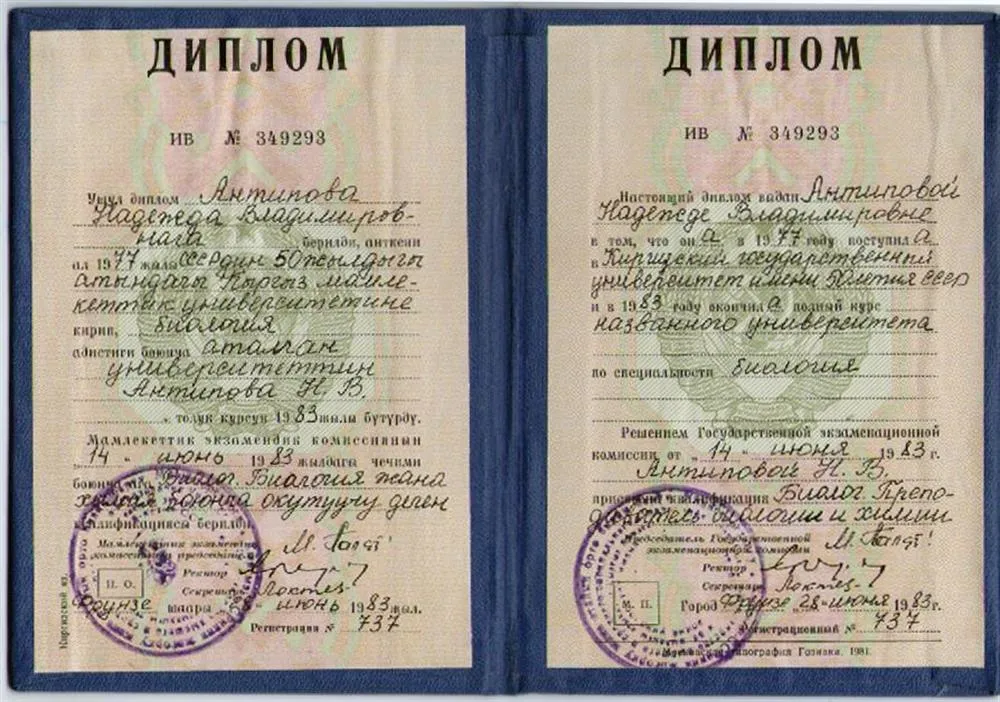 ДИПЛОМ
ИВ № 349293
Ушул диплом Антипова
Надежда Владимиров-
нага берилди, анткени
ал 1977 жылы СССРдин 50 жылдыгы
атындагы Кыргыз мамле-
кеттик университетине
кирип, биология
адистиги боюнча аталган
университеттин
Антипова Н. В.
толук курсун 1983 жылы бүтүрдү.
Мамлекеттик экзамендик комиссиянын
14 " июнь 1983 жылдагы чечими
боюнча Биолог. Биология жана
химия боюнча окутуучу деген
квалификациясы берилди
Мамлекеттик экзамендик
комиссиянын председатели
Ректор
Секретарь
П. О.
Фрунзе шаары 28 " июнь 1983 жыл.
Регистрация № 737
Киргизский яз.
ДИПЛОМ
ИВ № 349293
Настоящий диплом выдан Антиповой
Надежде Владимировне
в том, что она в 1977 году поступила
в Киргизский государственный
университет имени 50летия СССР
и в 1983 году окончила полный курс
названного университета
по специальности биология
Решением Государственной экзаменационной
комиссии от „ 14 " июня 1983 г.
Антиповой Н. В.
присвоена квалификация Биолог. Препо-
даватель биологии и химии
Председатель Государственной
экзаменационной комиссии
Ректор
Секретарь
М. П.
Город Фрунзе 28 " июня 1983 г.
Регистрационный № 737
Московская типография Гознака. 1981.